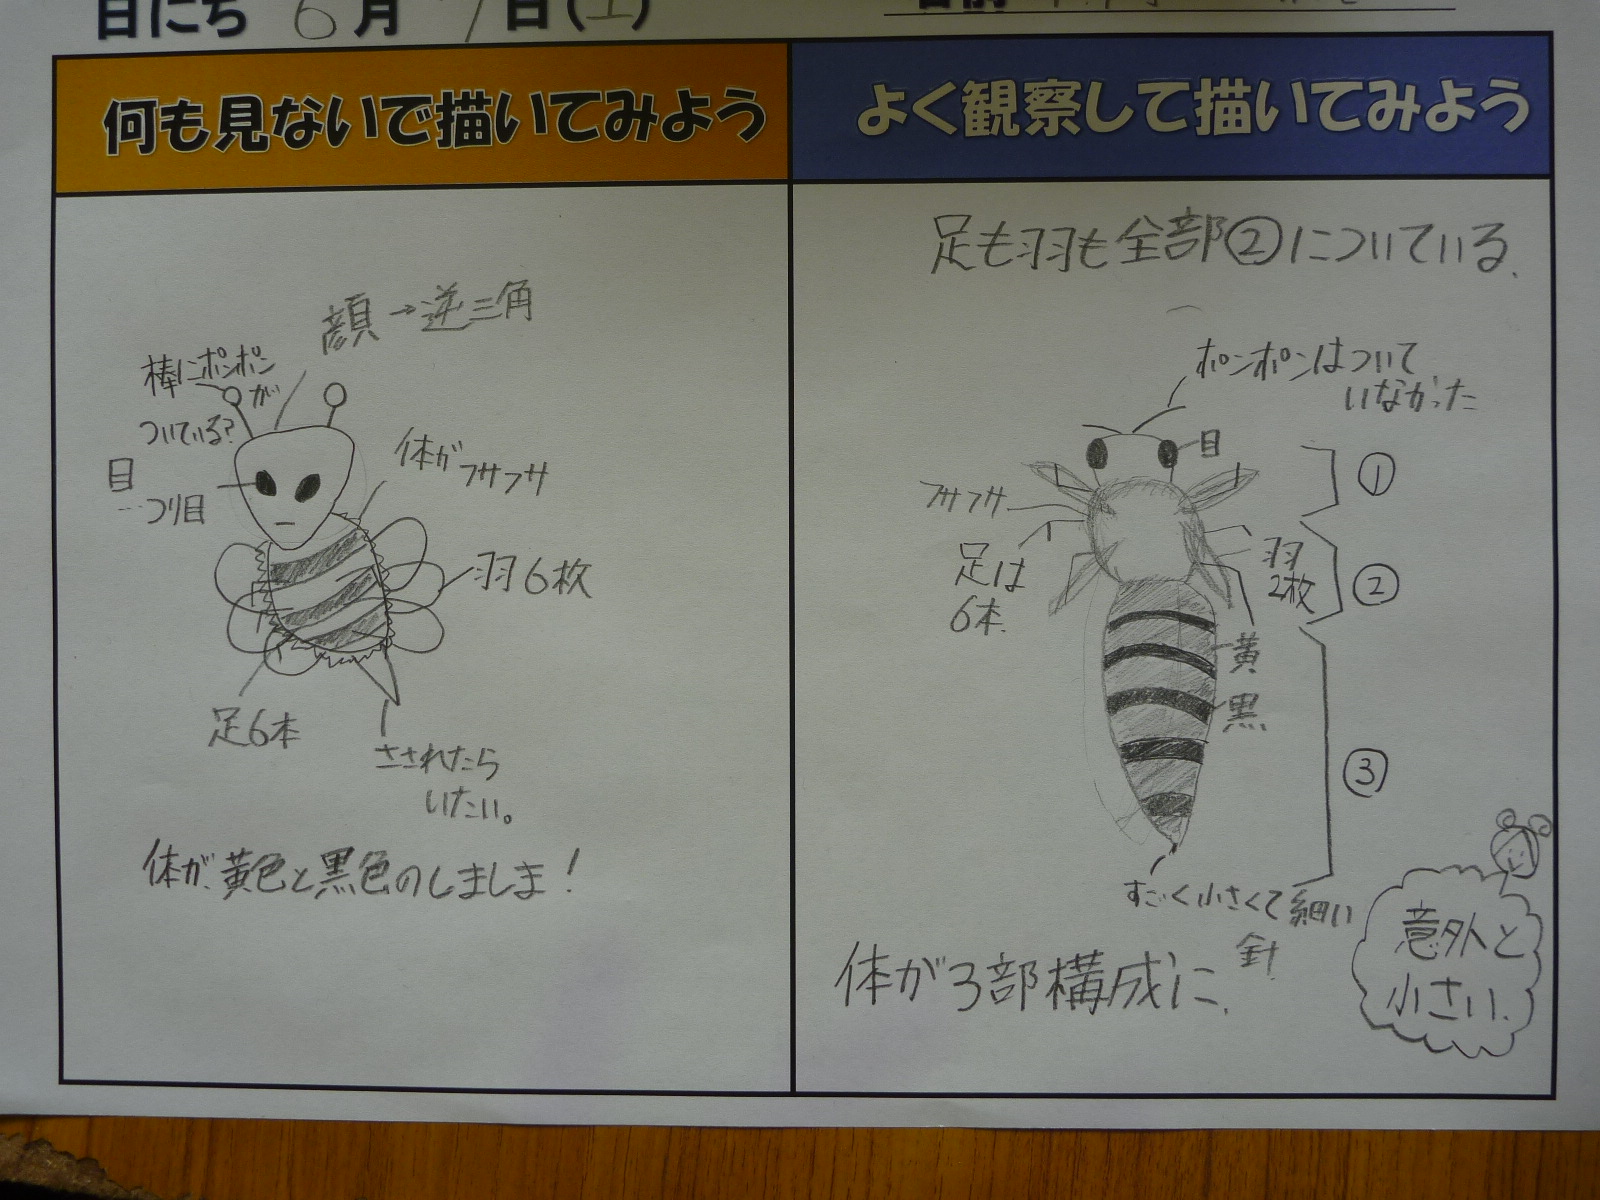 日にち 6月 7日(土)
何も見ないで描いてみよう
顔→逆三角
棒にポンポン
が
ついている?
体がフサフサ
目
…つり目
羽6枚
足6本
さされたら
いたい。
体が、黄色と黒色のしましま!
よく観察して描いてみよう
足も羽も全部②についている.
ポンポンはついて
いなかった
目
①
フサフサ
足は
6本.
羽
2枚
②
黄
黒
③
すごく小さくて細い
針
体が3部構成に.
意外と
小さい.